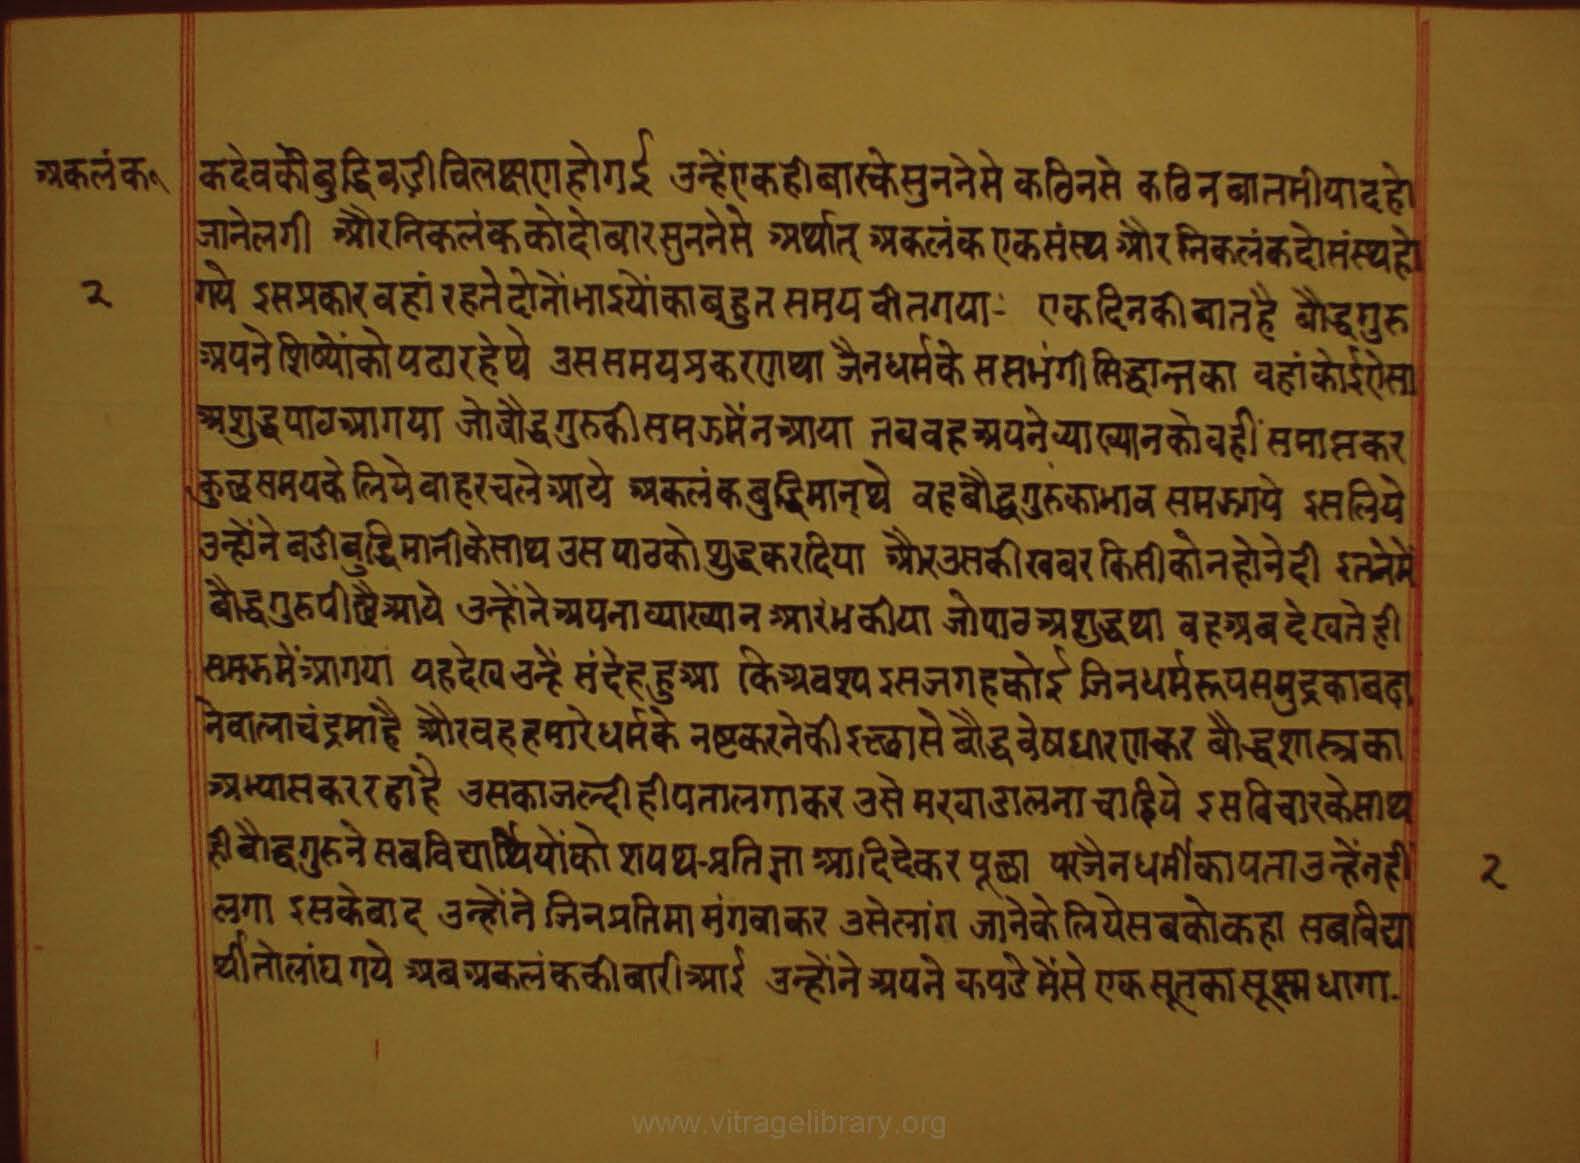 अकलंक॰
२
कदेवकी बुद्धि बड़ी विलक्षण होगई उन्हें एकही बारके सुननेसे कठिनसे कठिन बातभी याद हो
जाने लगी और निकलंकको दो बार सुननेसे अर्थात् अकलंक एकसंस्थ और निकलंक दोसंस्थ हो
गये इस प्रकार वहां रहते दोनों भाइयोंका बहुत समय बीत गया- एक दिनकी बात है बौद्धगुरु
अपने शिष्योंको पढारहे थे उस समय प्रकरण था जैनधर्मके सप्तभंगी सिद्धान्तका वहां कोई ऐसा
अशुद्ध पाठ आगया जो बौद्धगुरुकी समझमें न आया तब वह अपने व्याख्यानको वहीं समाप्तकर
कुछ समयके लिये बाहर चले आये अकलंक बुद्धिमान् थे वह बौद्धगुरुका भाव समझगये इसलिये
उन्होंने बडी बुद्धिमानीके साथ उस पाठको शुद्ध करदिया और उसकी खबर किसीको न होने दी इतनेमें
बौद्धगुरु पीछै आये उन्होंने अपना व्याख्यान आरंभ कीया जो पाठ अशुद्ध था वह अब देखते ही
समझमें आगया यह देख उन्हें संदेह हुआ कि अवश्य इस जगह कोई जिनधर्मरूप समुद्रका बढा
नेवाला चंद्रमा है और वह हमारे धर्मके नष्ट करनेकी इच्छासे बौद्ध वेष धारणकर बौद्धशास्त्रका
अभ्यास कर रहा है उसका जल्दी ही पता लगाकर उसे मरवा डालना चाहिये इस विचारके साथ
ही बौद्धगुरुने सब विद्यार्थियोंको शपथ-प्रतिज्ञा आदि देकर पूछा पर जैनधर्मीका पता उन्हें नहीं
लगा इसके बाद उन्होंने जिनप्रतिमा मंगवाकर उसे लांग जानेके लिये सबको कहा सब विद्या
र्थी तो लांघ गये अब अकलंककी बारी आई उन्होंने अपने कपडेमेंसे एक सूतका सूक्ष्म धागा-
२
www.vitragelibrary.org